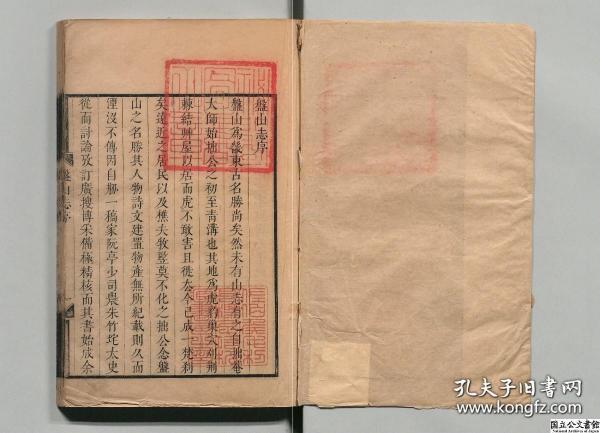 盤山志序
盤山爲畿東古名勝尚矣然未有山志有之自拙菴
大師始拙公之初至青溝也其地爲虎豹巢穴刈荆
棘結艸屋以居而虎不敢害且徙去今已成一梵刹
矣遠近之居民以及樵夫牧豎莫不化之拙公念盤
山之名勝其人物詩文建置物產無所紀載則久而
湮沒不傳因自勝一稿家阮亭少司農朱竹垞太史
從而討論攷訂廣搜博采備極精核而其書始成余
盤山志序
一
孔夫子旧书网
www.kongfz.com
国立公文書館
National Archives of Japan